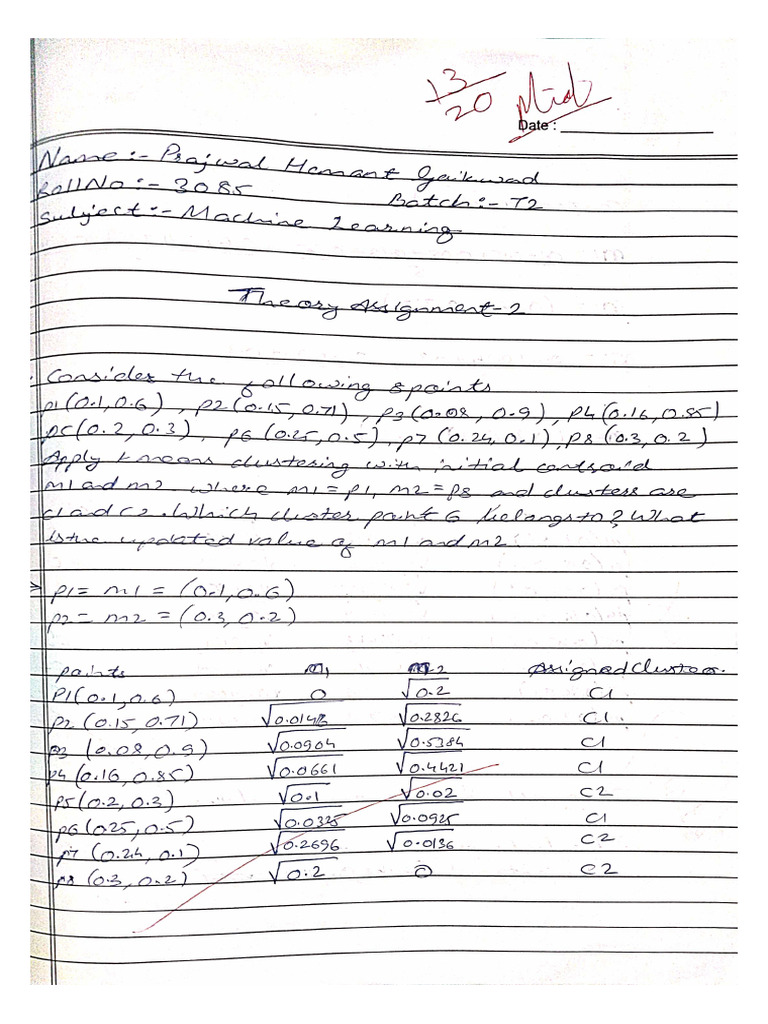 13
20
Date :
Name :- Prajwal Hemant Gaikwad
Roll No :- 3085 Batch :- T2
Subject :- Machine Learning
Theory Assignment - 2
Consider the following 8 points
p1(0.1,0.6) , p2(0.15,0.71) , p3(0.08,0.9), p4(0.16,0.85)
p5(0.2,0.3) , p6(0.25,0.5), p7(0.24,0.1), p8(0.3,0.2)
Apply k means clustering with initial centroid
m1 and m2 where m1=p1, m2=p8 and clusters are
c1 and c2. Which cluster point 6 belongs to? What
is the updated value of m1 and m2.
=> p1 = m1 = (0.1,0.6)
p2 = m2 = (0.3,0.2)
points m1 m2 Assigned Cluster.
P1(0.1,0.6) 0 √0.2 C1
P2 (0.15,0.71) √0.0146 √0.2826 C1.
p3 (0.08,0.9) √0.0904 √0.5384 C1
p4(0.16,0.85) √0.0661 √0.4421 C1
p5(0.2,0.3) √0.1 √0.02 C2
p6(025,0.5) √0.0325 √0.0925 C1
p7 (0.24,0.1) √0.2696 √0.0136 C2
p8 (0.3,0.2) √0.2 0 C2